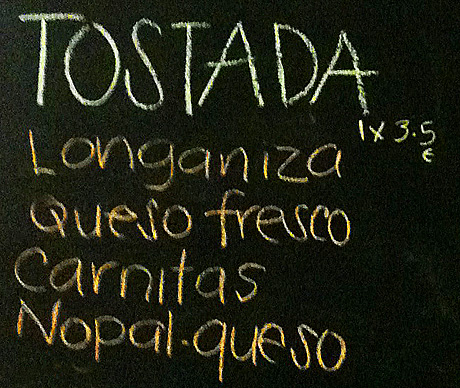 TOSTADA
1 x 3.5
€
Longaniza
Queso fresco
Carnitas
Nopal.queso